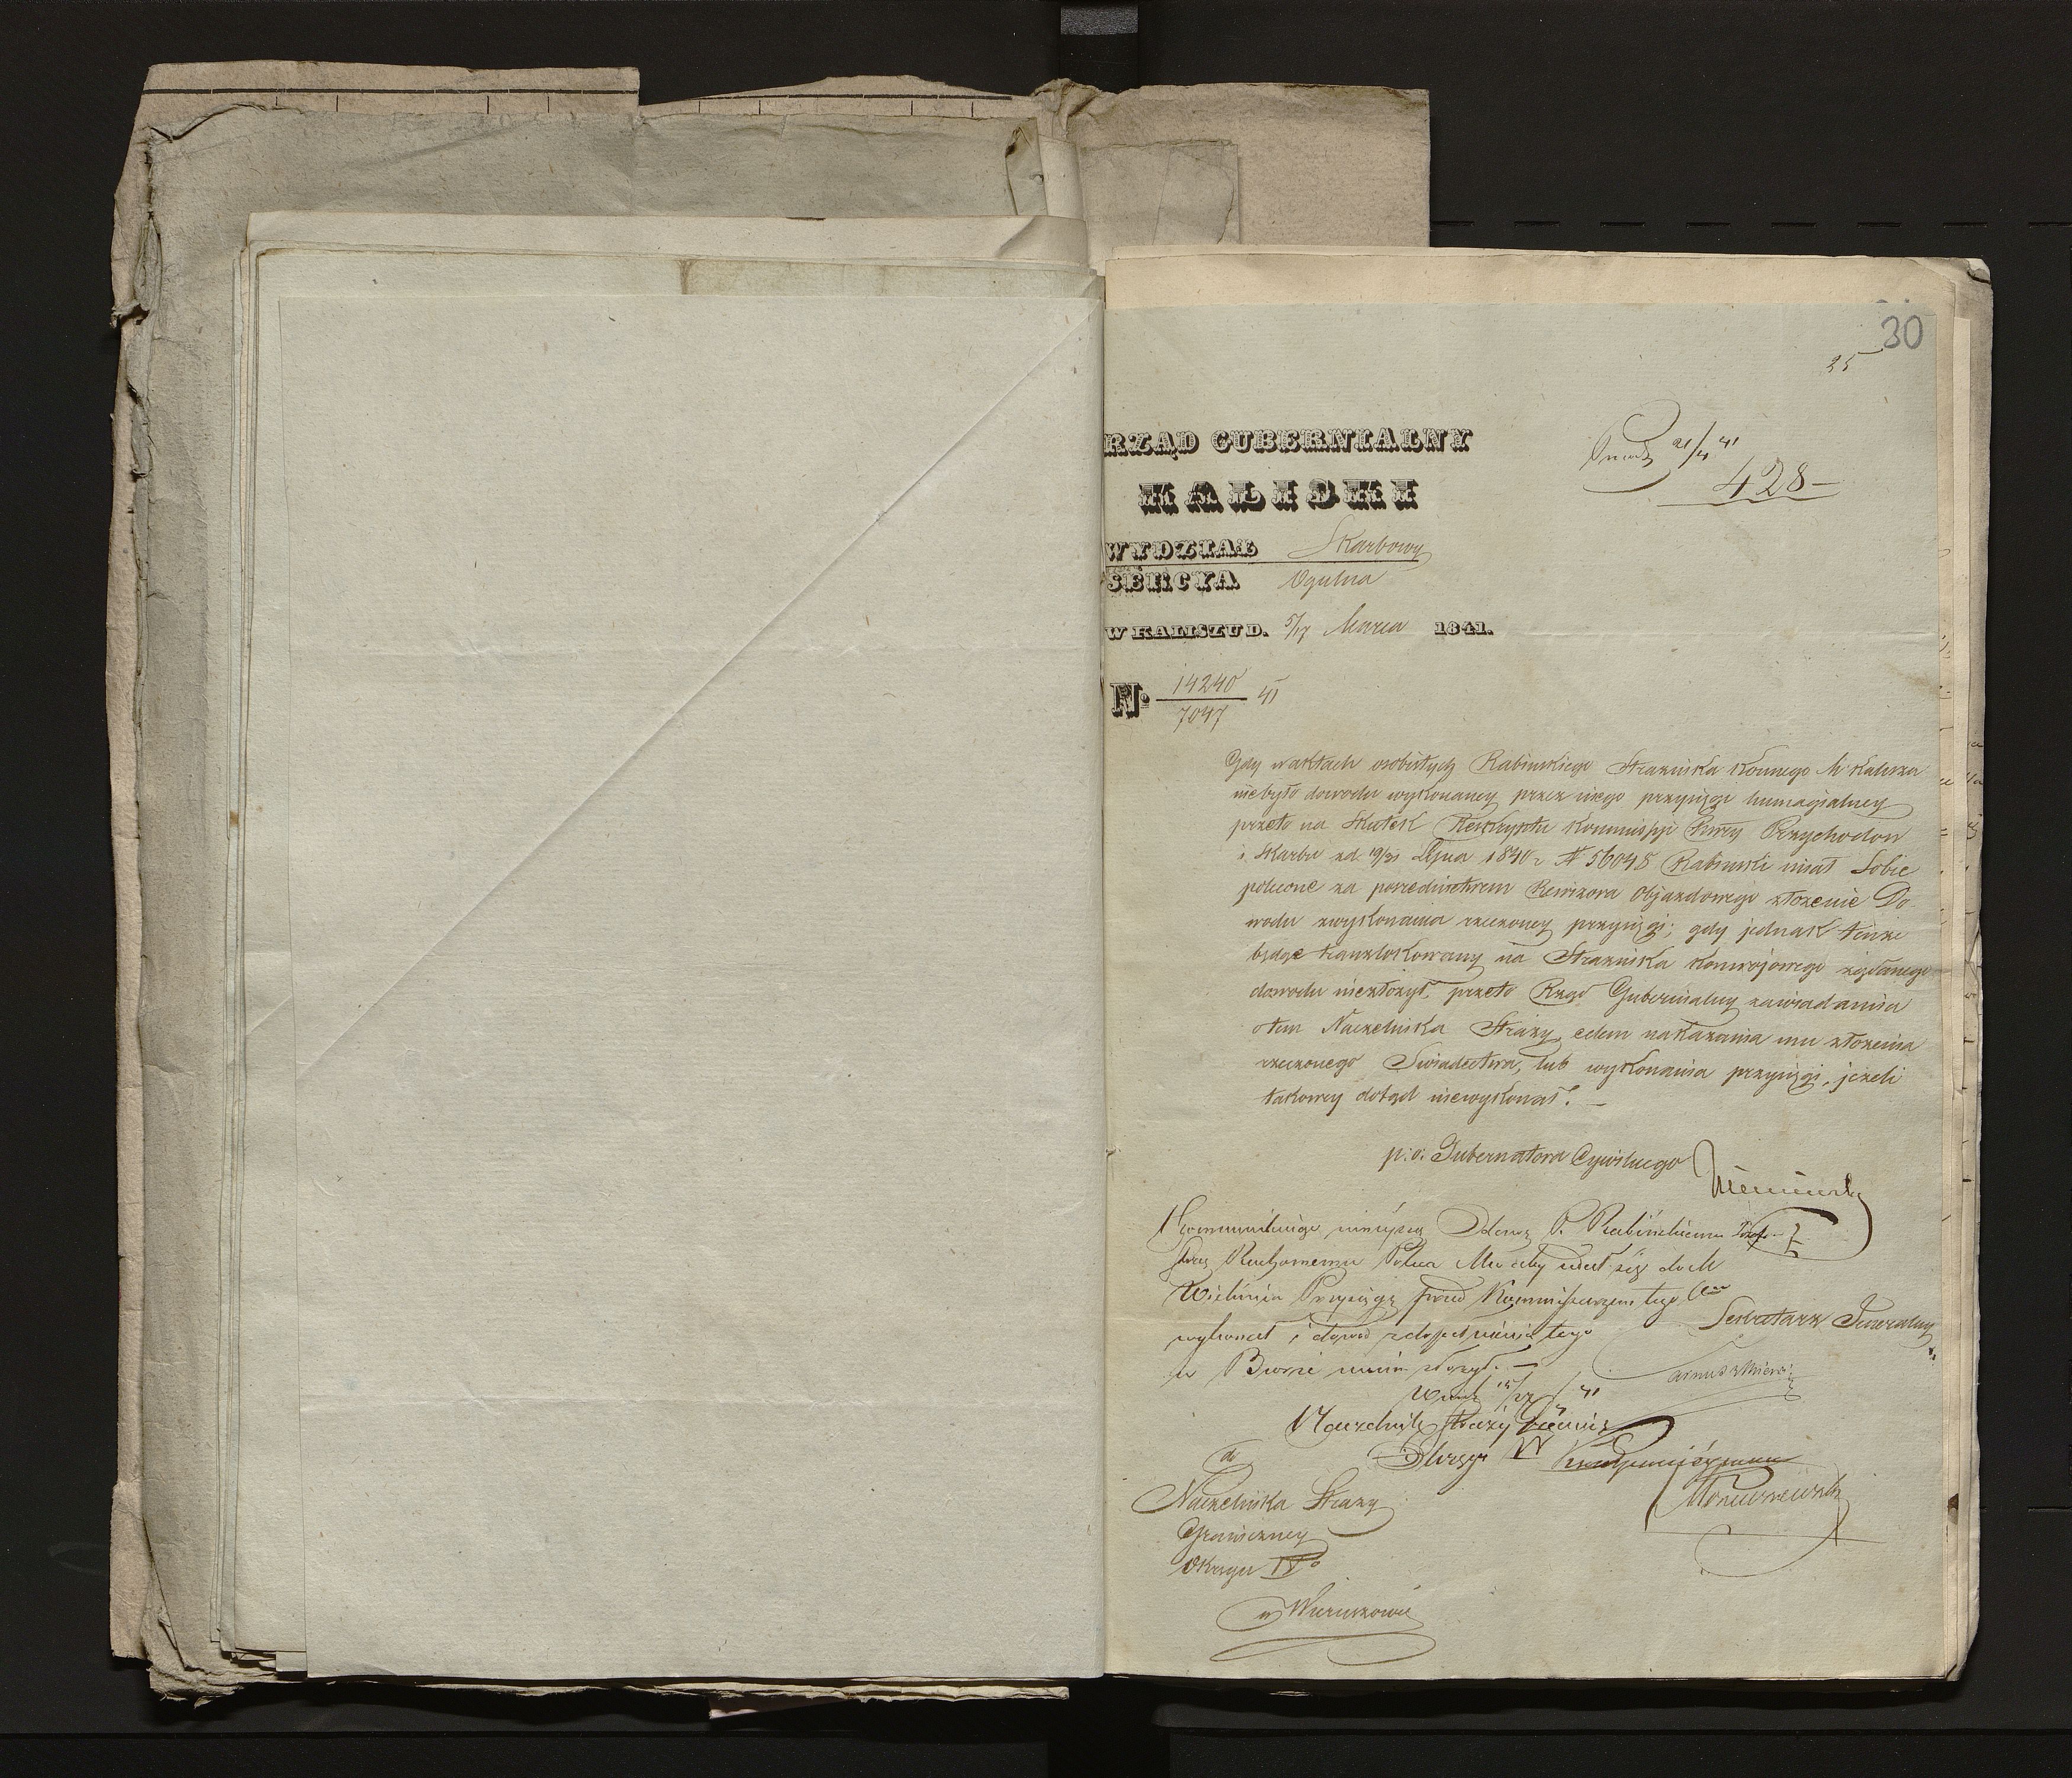 30
25
428 –
RZĄD GUBERNIALNY
KALISKI
WYDZIAŁ Skarbowy
SEKCYA Ogulna
W KALISZU D. 5/17 Marca 1841.
No. 14240/7047 41
Gdy w aktach osobistych Rabinskiego Strażnika Konnego M. Kalisza
niebyło dowodu wykonaney przez niego przysięgi humagialney
przeto na Skutek Reskryptu Kommissyi Przychodow
i Skarbu z d. 19/31 Lipca 1840 r N 56048 Rabinski miał Sobie
polecone za posrednictwem Rewizora Objazdowego złożenie Do-
wodu z wykonania rzeczoney przysięgi; gdy jednak tenże
będąc translokowany na Strażnika Konwojowego żądanego
dowodu niezłożył, przeto Rząd Gubernialny zawiadamia
o tem Naczelnika Straży celem nakazania mu złożenia
rzeczonego Swiadectwa, lub wykonania przysięgi, jeżeli
takowey dotąd niewykonał. –
p.o. Gubernatora Cywilnego
P. Rabinskiemu
udał się do M
Wielunia Przysięgę przed Kommissarzem tego
wykonał i dowod z dopełnienia tego
w Biorze moim złożył. –
Sekretarz Jeneralny
Naczelnik Straży
do
Naczelnika Straży
Graniczney
Okręgu IVo
w Wieruszowie